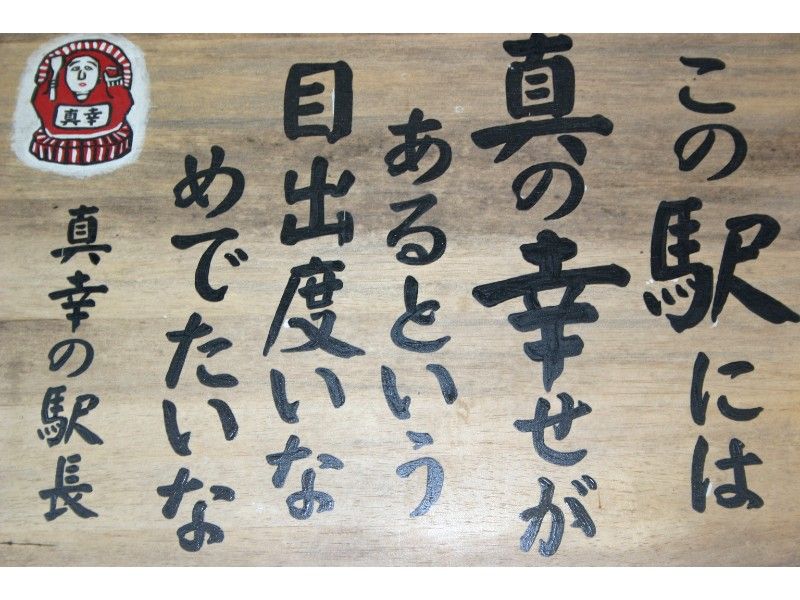 この駅には
真の幸せが
あるという
目出度いな
めでたいな
真幸の駅長
真幸